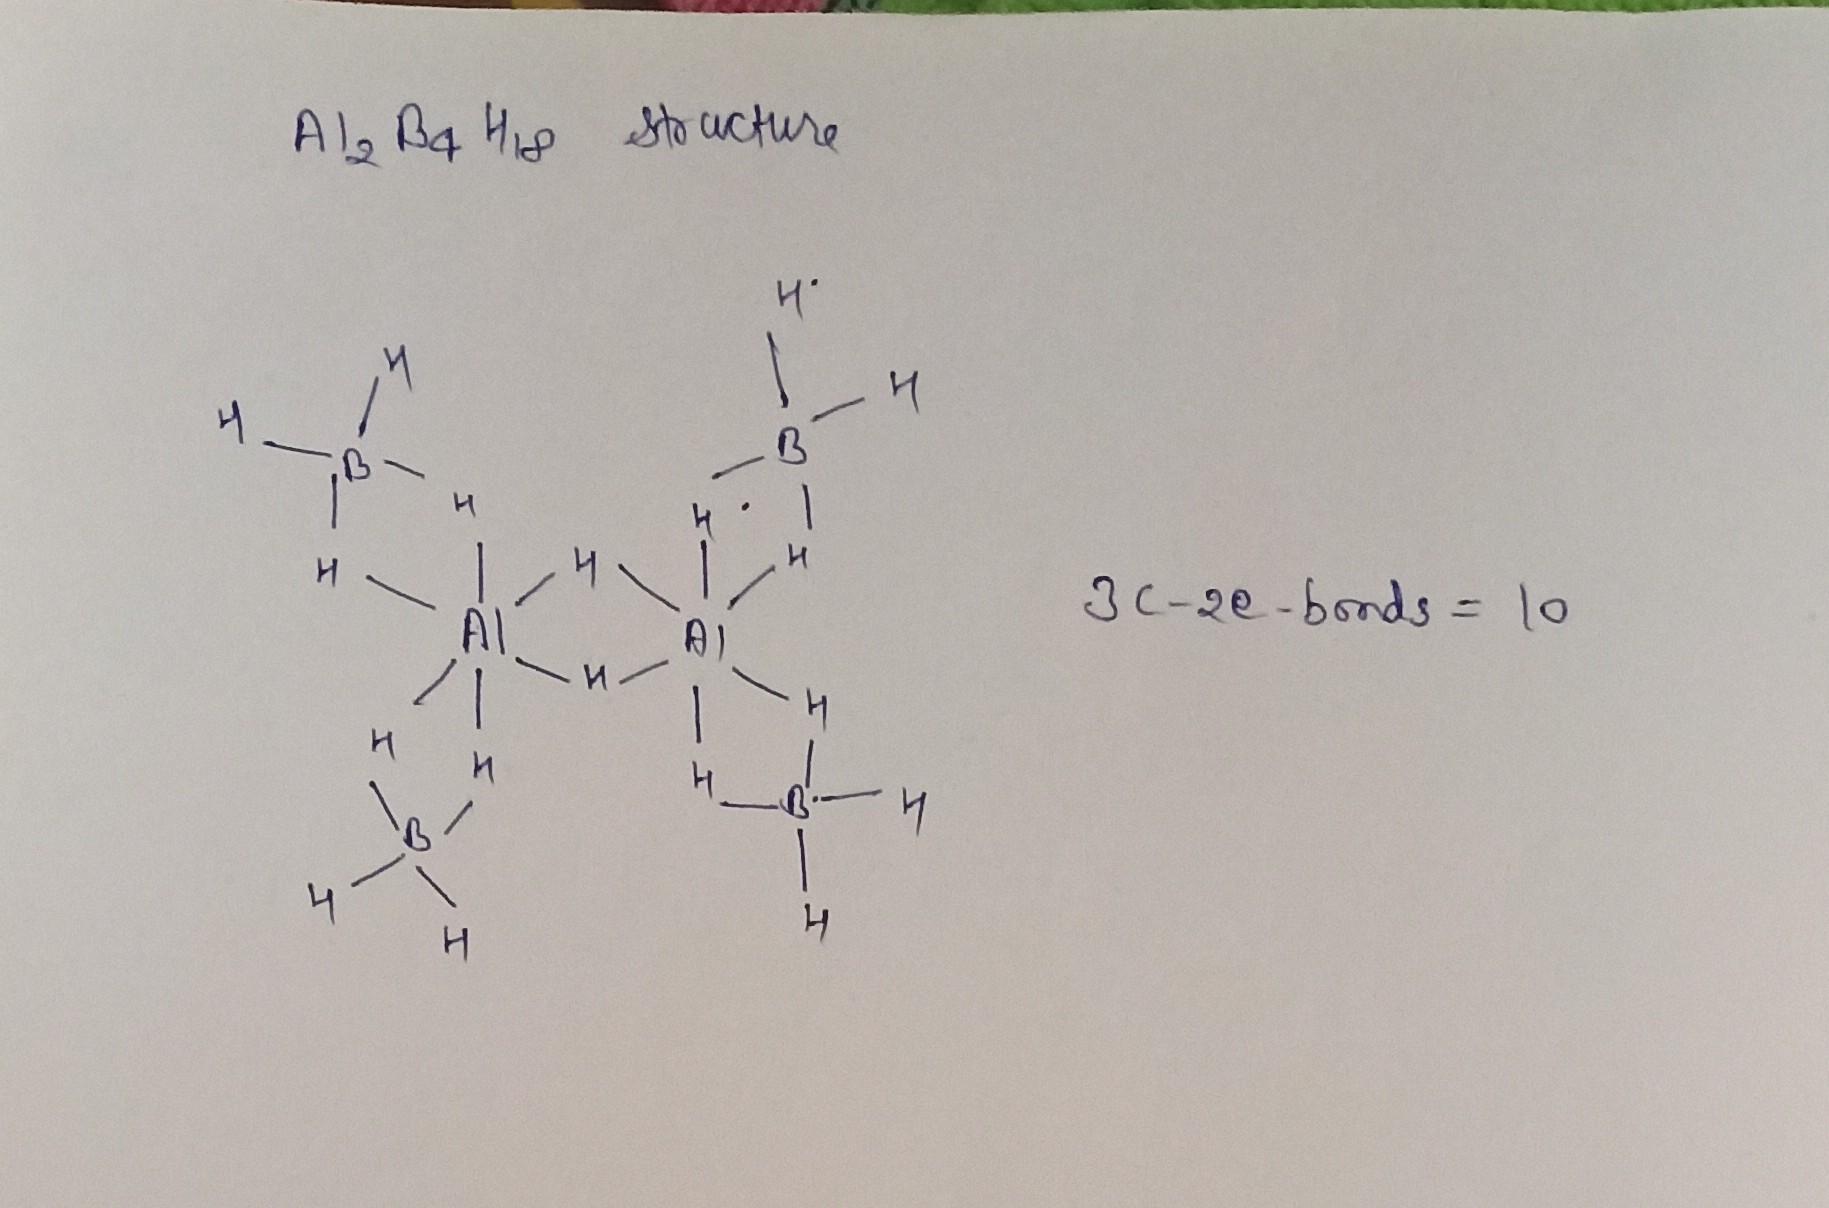 Al2 B4 H18 structure
H
H
H
H
B
B
H
H
H
H
H
Al
Al
H
H
H
H
H
H
B
B
H
H
H
H
3C-2e-bonds = 10